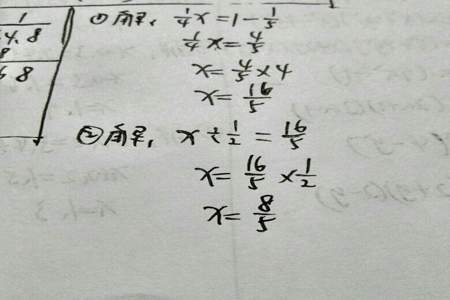 ①解: 1/4 x = 1 - 1/5
1/4 x = 4/5
x = 4/5 × 4
x = 16/5
②解: x ÷ 1/2 = 16/5
x = 16/5 × 1/2
x = 8/5